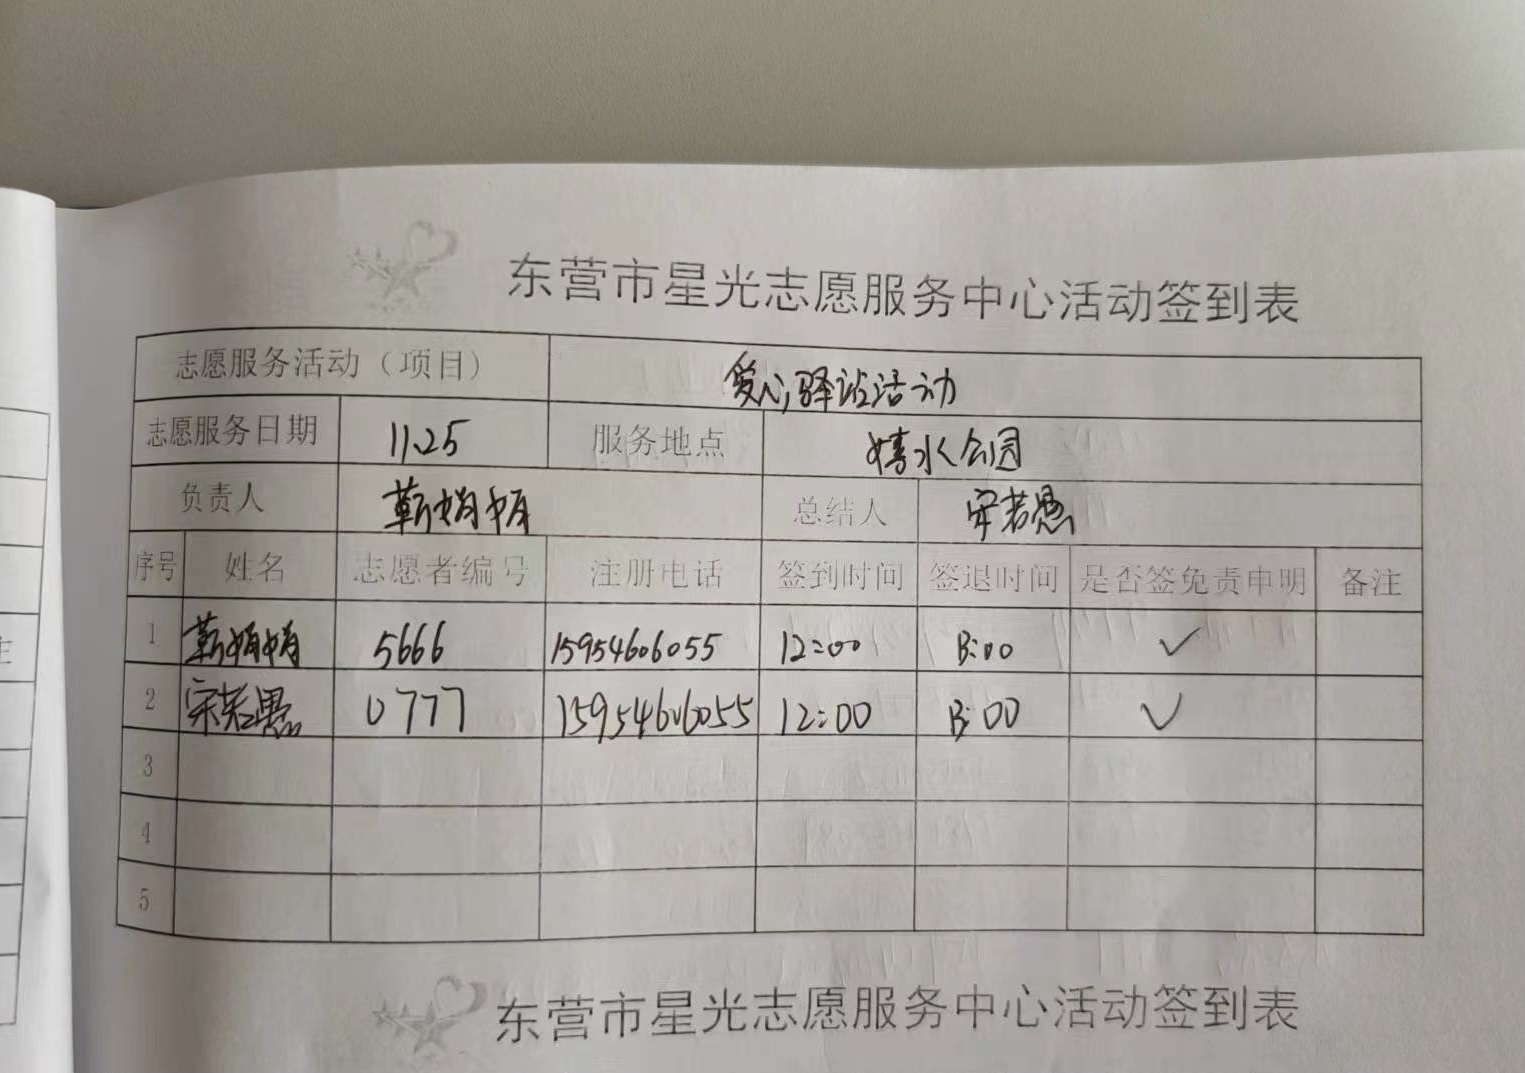 东营市星光志愿服务中心活动签到表
志愿服务活动（项目） 爱心驿站活动
志愿服务日期 11.25 服务地点 嬉水公园
负责人 靳娟娟 总结人 宋若愚
序号 姓名 志愿者编号 注册电话 签到时间 签退时间 是否签免责申明 备注
1 靳娟娟 5666 15954606055 12:00 13:00 ✓
2 宋若愚 0777 15954606055 12:00 13:00 ✓
3
4
5
东营市星光志愿服务中心活动签到表